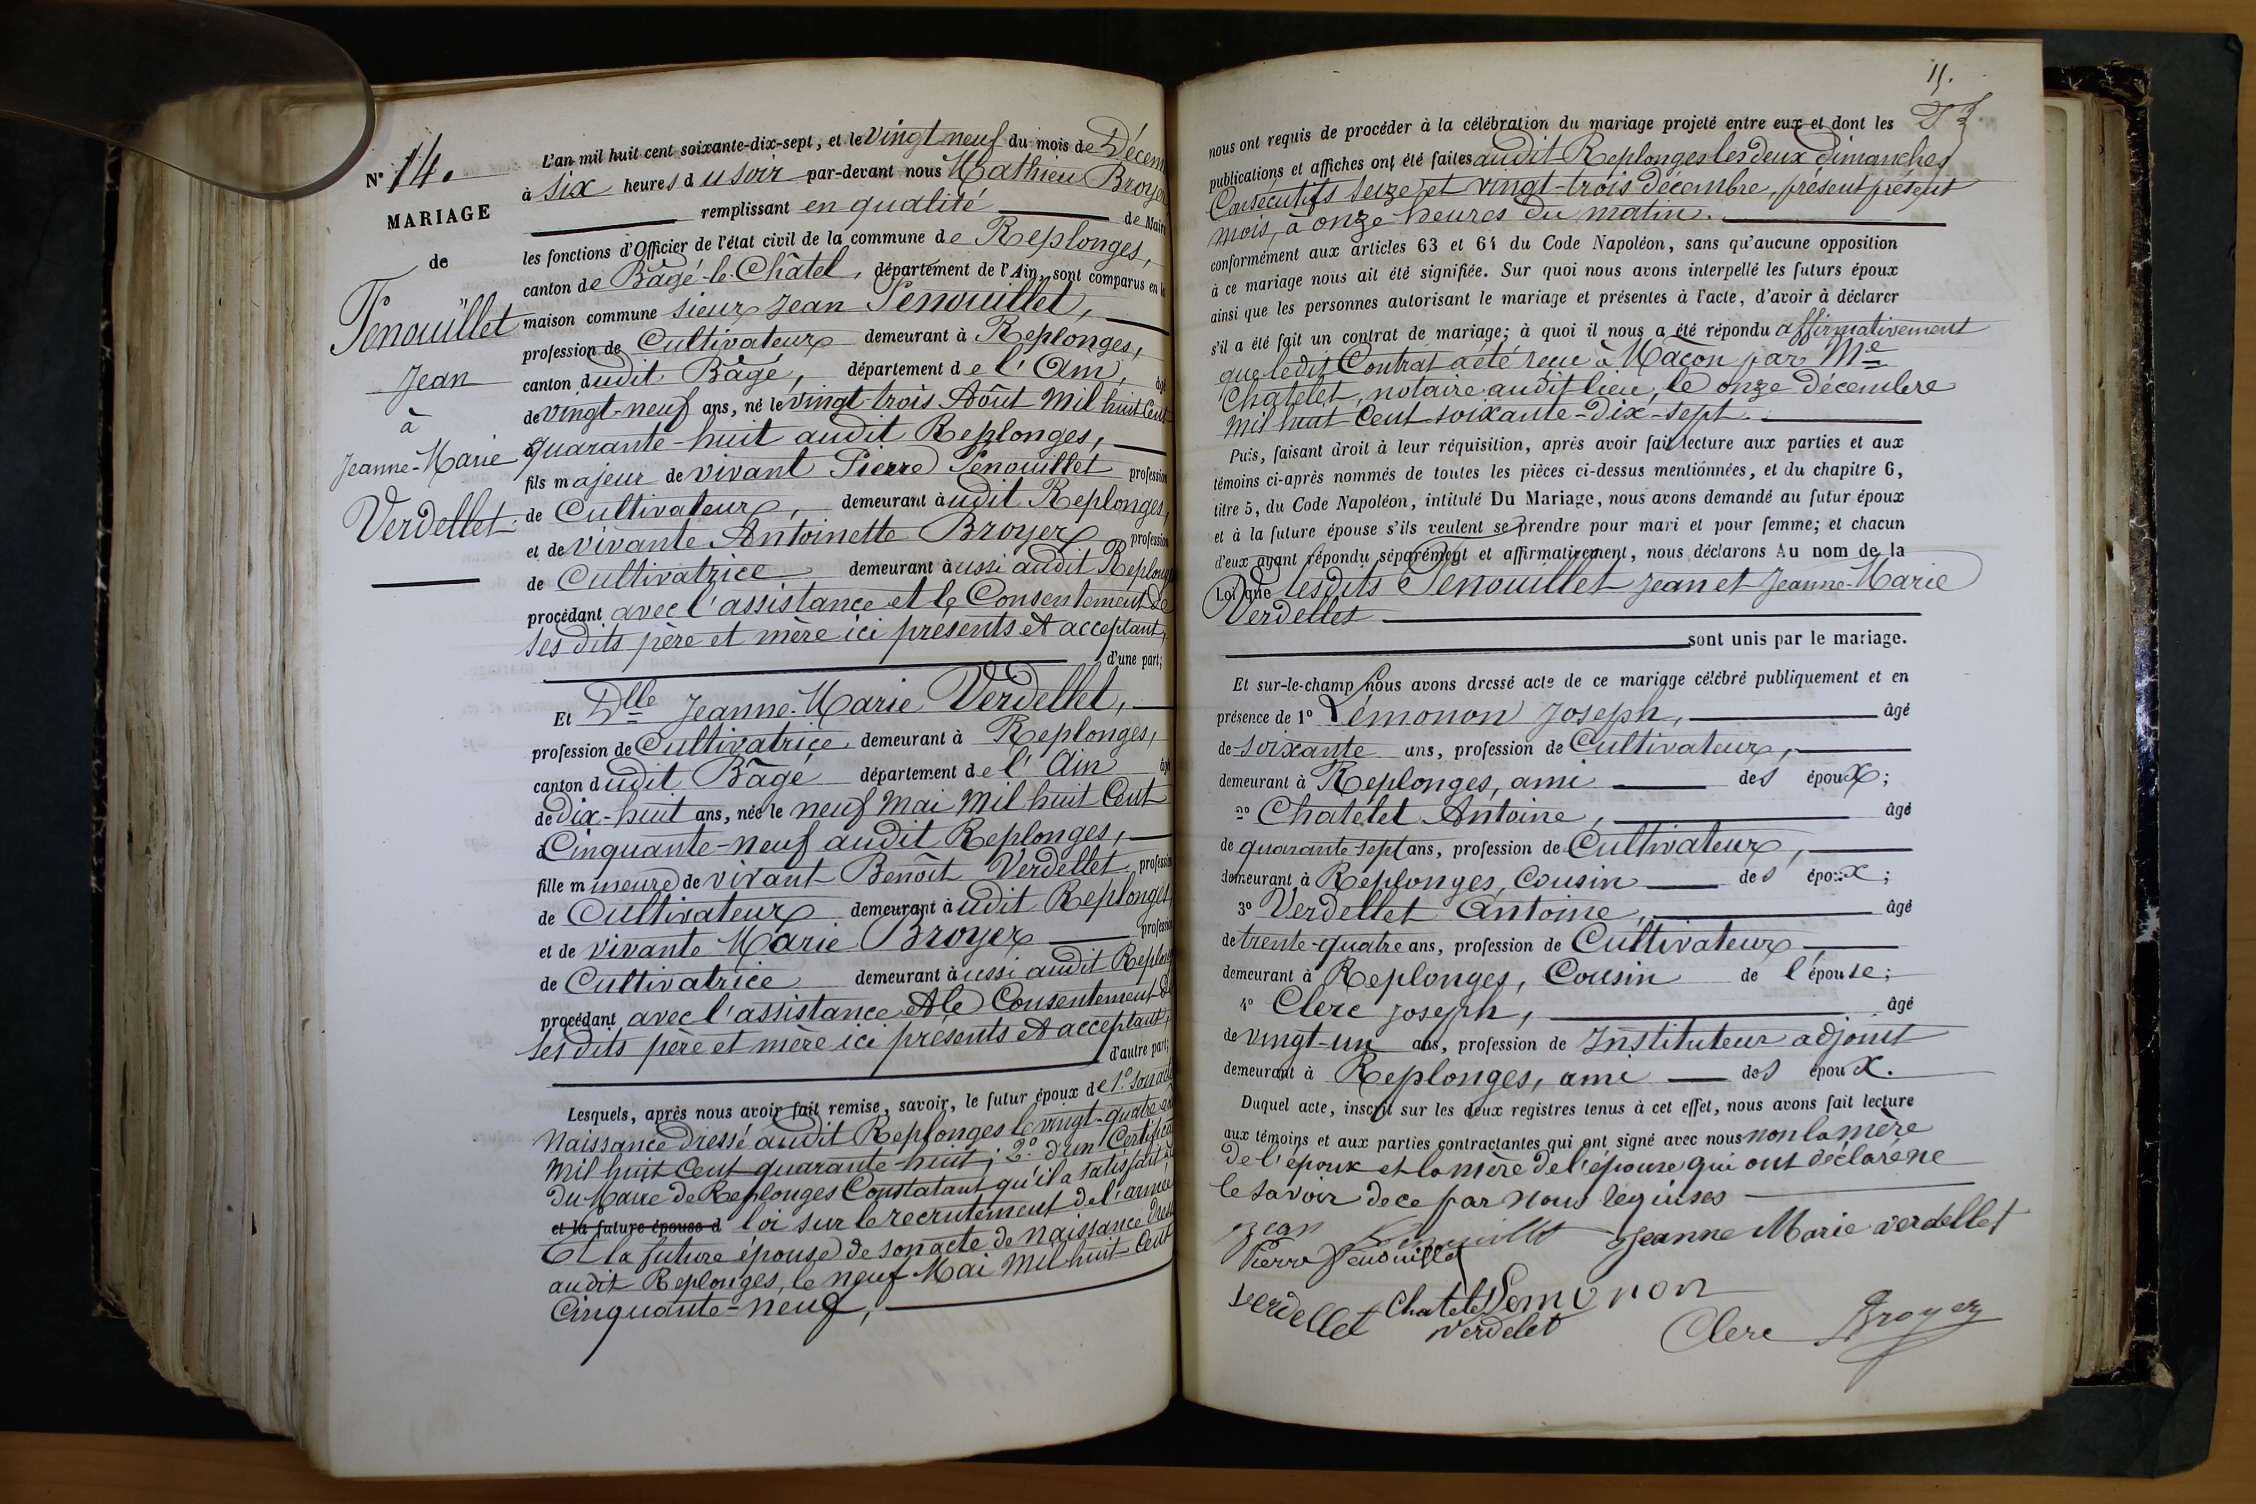 N° 14.
MARIAGE
de
Penouillet
Jean
à
Jeanne-Marie
Verdellet.
L'an mil huit cent soixante-dix-sept, et le vingt neuf du mois de Décem
à six heures du soir par-devant nous Mathieu Broyer
remplissant en qualité de Maire
les fonctions d'Officier de l'état civil de la commune de Replonges,
canton de Bâgé-le-Châtel, département de l'Ain, sont comparus en la
maison commune sieur Jean Penouillet,
profession de Cultivateur demeurant à Replonges,
canton dudit Bâgé, département de l'Ain, âgé
de vingt-neuf ans, né le vingt-trois Août mil huit Cent
quarante-huit audit Replonges,
fils majeur de vivant Pierre Penouillet profession
de Cultivateur, demeurant audit Replonges,
et de vivante Antoinette Broyer profession
de Cultivatrice demeurant aussi audit Replong
procédant avec l'assistance et le Consentement de
ses dits père et mère ici présents et acceptant,
d'une part;
Et Dlle Jeanne-Marie Verdellet,
profession de Cultivatrice demeurant à Replonges,
canton dudit Bâgé département de l'Ain âgé
de Dix-huit ans, née le neuf mai mil huit Cent
Cinquante-neuf audit Replonges,
fille mineure de vivant Benoît Verdellet profession
de Cultivateur demeurant audit Replonges
et de vivante Marie Broyer profession
de Cultivatrice demeurant aussi audit Replon
procédant avec l'assistance et le Consentement de
ses dits père et mère ici présents et acceptant,
d'autre part;
Lesquels, après nous avoir fait remise, savoir, le futur époux de 1° son acte
Naissance Dressé audit Replonges le vingt-quatre
mil huit Cent quarante-huit; 2° d'un Certifica
du Maire de Replonges Constatant qu'il a satisfait à
et la future épouse d loi sur le recrutement de l'armée
Et la future épouse de son acte de Naissance Dres
audit Replonges, le neuf Mai mil huit Cent
Cinquante-neuf,
11.
nous ont requis de procéder à la célébration du mariage projeté entre eux et dont les
publications et affiches ont été faites audit Replonges les deux dimanches
Consécutifs seize et vingt-trois décembre, présent présent
mois, à onze heures du matin.
conformément aux articles 63 et 64 du Code Napoléon, sans qu'aucune opposition
à ce mariage nous ait été signifiée. Sur quoi nous avons interpellé les futurs époux
ainsi que les personnes autorisant le mariage et présentes à l'acte, d'avoir à déclarer
s'il a été fait un contrat de mariage; à quoi il nous a été répondu affirmativement
que ledit Contrat a été reçu à Mâcon par Me
Chatelet, notaire audit lieu, le onze Décembre
mil huit Cent soixante-Dix-sept.
Puis, faisant droit à leur réquisition, après avoir fait lecture aux parties et aux
témoins ci-après nommés de toutes les pièces ci-dessus mentionnées, et du chapitre 6,
titre 5, du Code Napoléon, intitulé Du Mariage, nous avons demandé au futur époux
et à la future épouse s'ils veulent se prendre pour mari et pour femme; et chacun
d'eux ayant répondu séparément et affirmativement, nous déclarons Au nom de la
Loi que lesdits Penouillet Jean et Jeanne-Marie
Verdellet
sont unis par le mariage.
Et sur-le-champ nous avons dressé acte de ce mariage célébré publiquement et en
présence de 1° Lémonon Joseph, âgé
de soixante ans, profession de Cultivateur,
demeurant à Replonges, ami des époux;
2° Chatelet Antoine, âgé
de quarante-sept ans, profession de Cultivateur,
demeurant à Replonges, Cousin des époux;
3° Verdellet Antoine, âgé
de trente-quatre ans, profession de Cultivateur
demeurant à Replonges, Cousin de l'épouse;
4° Clerc Joseph, âgé
de vingt-un ans, profession de Instituteur adjoint
demeurant à Replonges, ami des époux.
Duquel acte, inscrit sur les deux registres tenus à cet effet, nous avons fait lecture
aux témoins et aux parties contractantes qui ont signé avec nous non la mère
De l'époux et la mère De l'épouse qui ont déclaré ne
le savoir de ce par nous requises
Jean Penouillet Jeanne Marie verdellet
Pierre Penouillet
Verdellet Chatelet Lemonon
verdelet Clerc Broyer